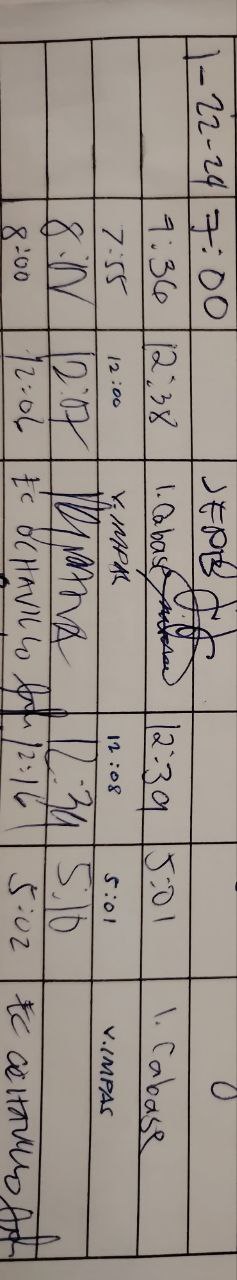 1-22-24 7:00
7:36 12:38 I. Cabase 12:39 5:01 I. Cabase
7:55 12:00 V. IMPAS 12:08 5:01 V. IMPAS
12:07 5:10
8:00 12:06 EC OCTAVILLO 12:16 5:02 EC OCTAVILLO